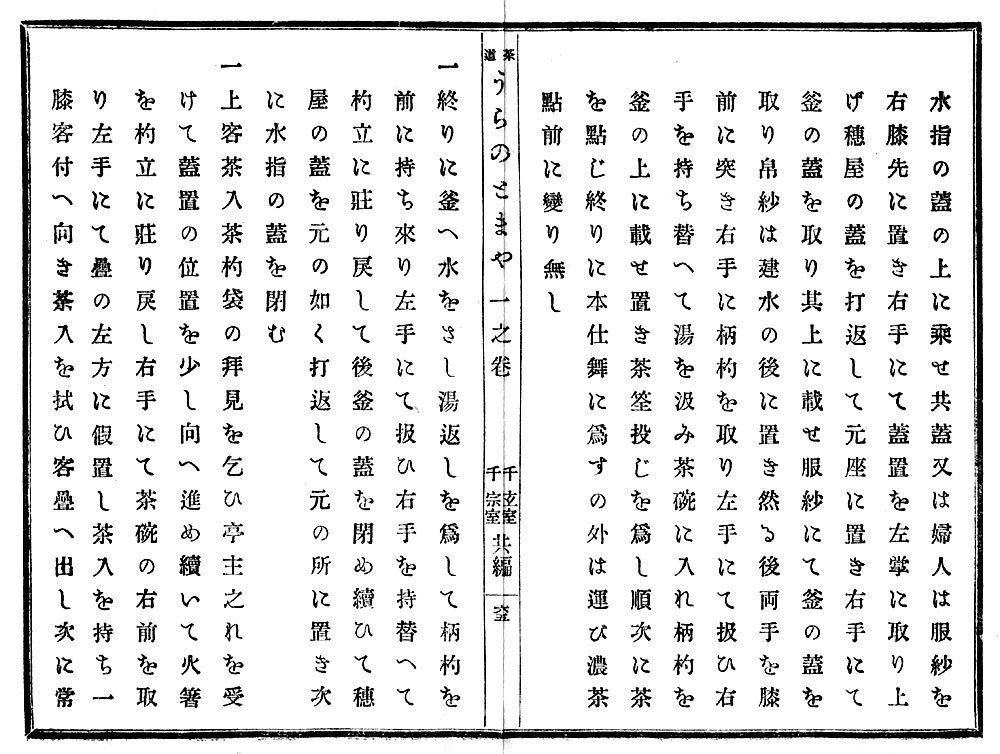 水指の蓋の上に乘せ共蓋又は婦人は服紗を
右膝先に置き右手にて蓋置を左掌に取り上
げ穗屋の蓋を打返して元座に置き右手にて
釜の蓋を取り其上に載せ服紗にて釜の蓋を
取り帛紗は建水の後に置き然る後両手を膝
前に突き右手に柄杓を取り左手にて扱ひ右
手を持ち替へて湯を汲み茶碗に入れ柄杓を
釜の上に載せ置き茶筌投じを爲し順次に茶
を點じ終りに本仕舞に爲すの外は運び濃茶
點前に變り無し
茶道 うらのとまや 一之卷 千玄室 千宗室 共編
一終りに釜へ水をさし湯返しを爲して柄杓を
前に持ち來り左手にて扱ひ右手を持替へて
杓立に莊り戻して後釜の蓋を閉め續ひて穗
屋の蓋を元の如く打返して元の所に置き次
に水指の蓋を閉む
一上客茶入茶杓袋の拜見を乞ひ亭主之れを受
けて蓋置の位置を少し向へ進め續いて火箸
を杓立に莊り戻し右手にて茶碗の右前を取
り左手にて疊の左方に假置し茶入を持ち一
膝客付へ向き茶入を拭ひ客疊へ出し次に常